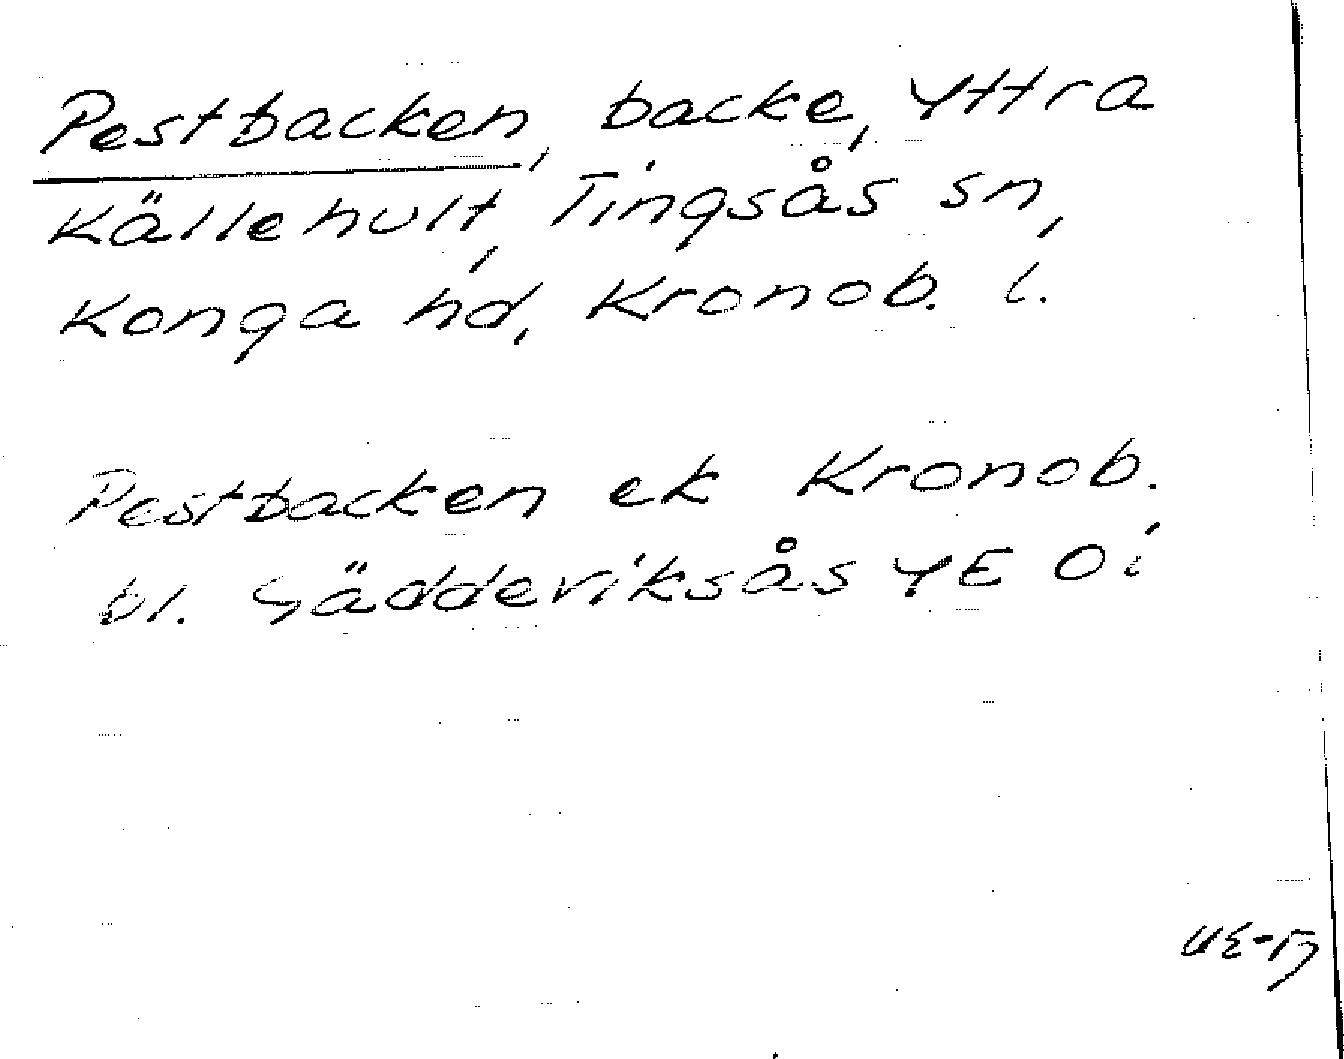 Pestbacken, backe, Yttra
Källehult, Tingsås sn,
Konga hd, Kronob. l.
Pestbacken ek Kronob.
bl. Gäddeviksås YE Oi